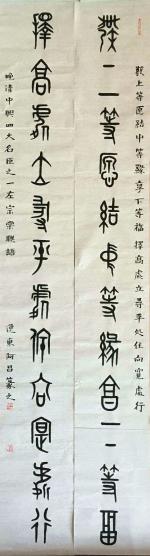 發上等愿結中等緣享下等福擇高處立尋平處住向寬處行
發上等愿結中等緣享下等福
擇高處立尋平處住向寬處行
晚清中興四大名臣之一左宗棠聯語
遼東阿昌篆之